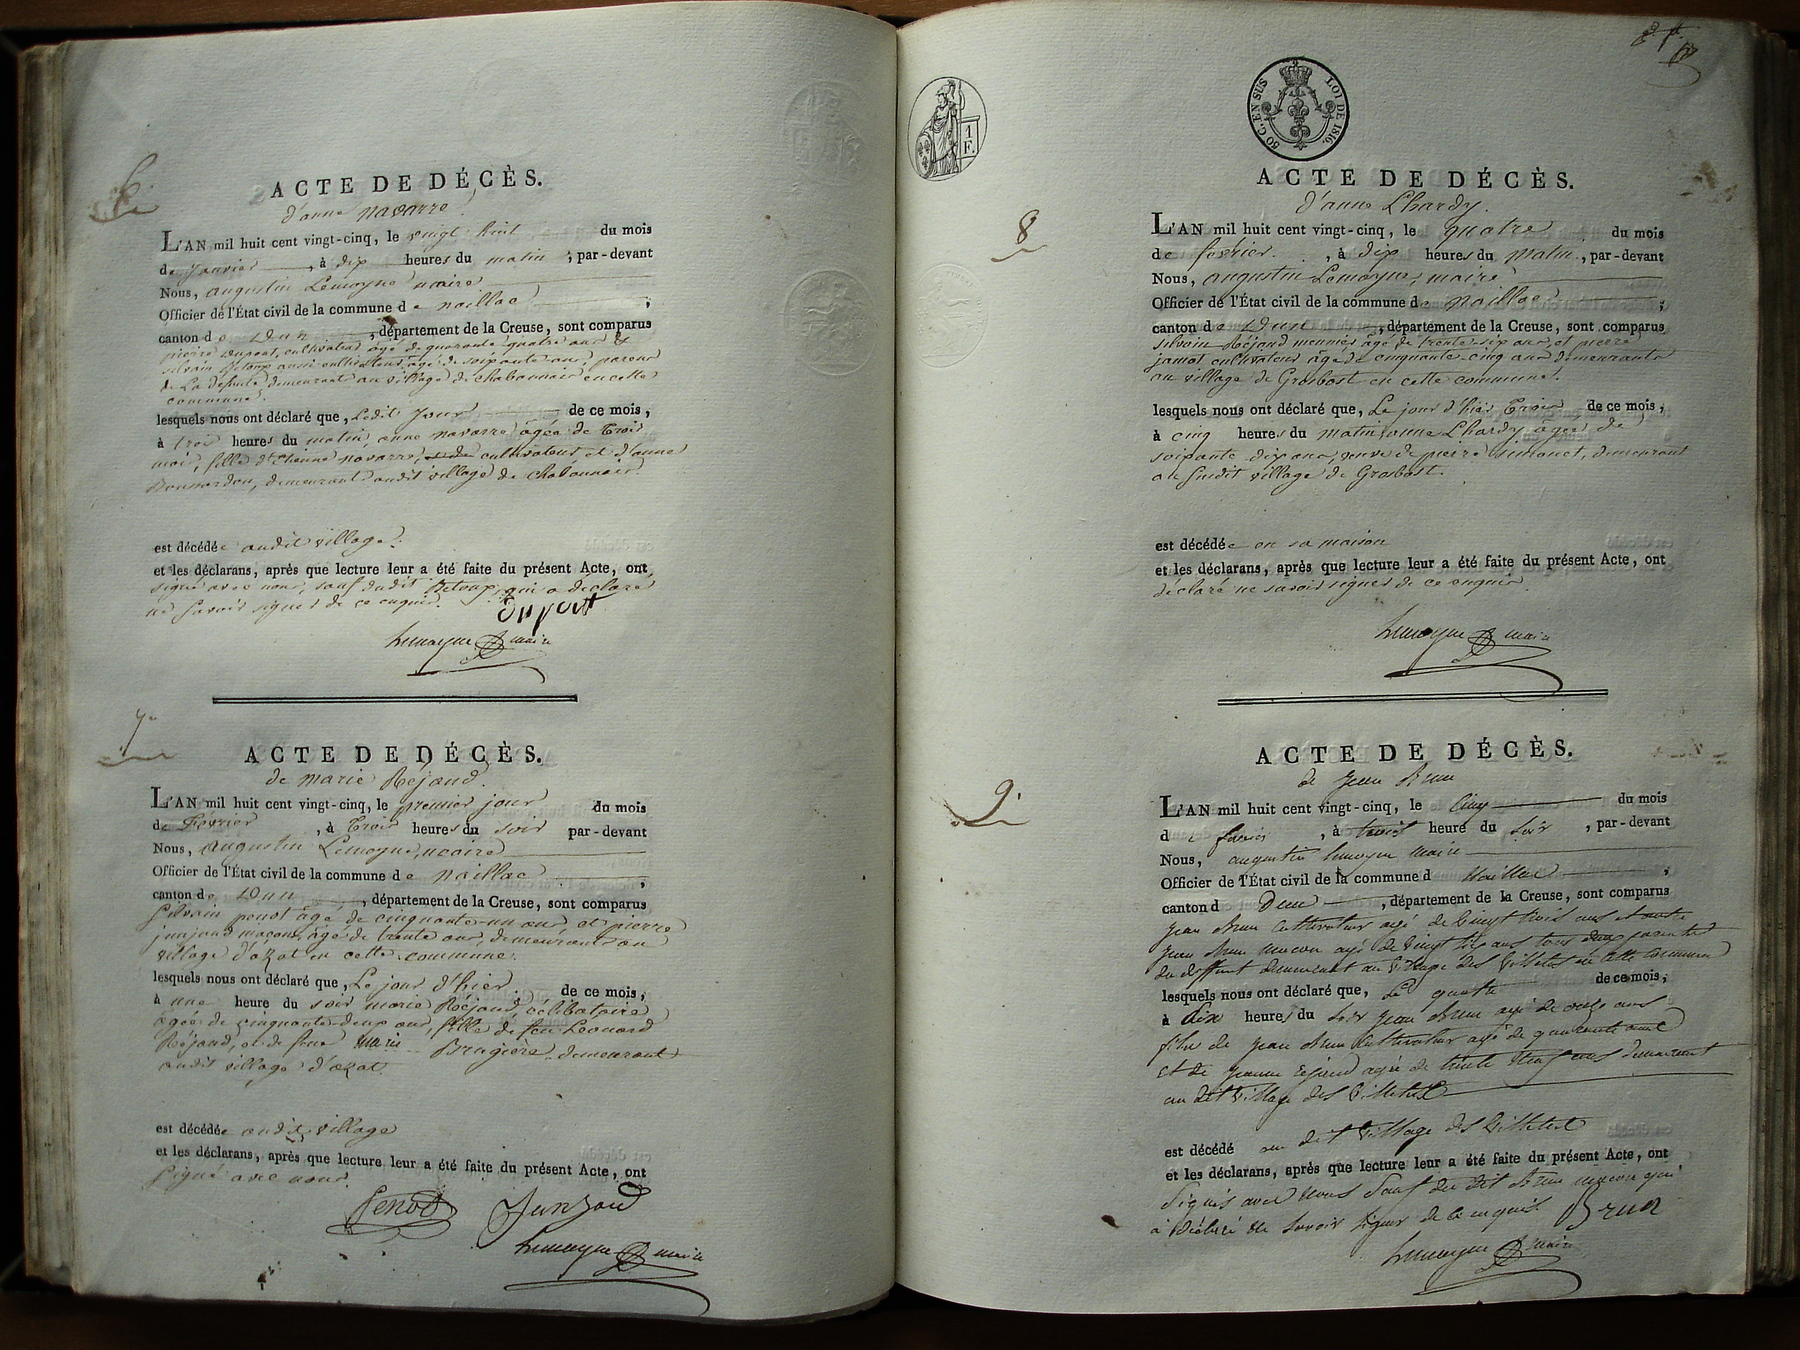 6.
ACTE DE DÉCÈS.
d'anne navarre
L'AN mil huit cent vingt-cinq, le vingt huit du mois
de Janvier, à dix heures du matin, par-devant
Nous, augustin Lemoyne maire
Officier de l'État civil de la commune de naillac ;
canton de Dun, département de la Creuse, sont comparus
pierre Dupont, cultivateur âgé de quarante quatre ans et
silvain Beloup aussi cultivateur âgé de soixante ans, parens
de La défunte demeurant au village de Chabannais en cette
commune.
lesquels nous ont déclaré que, Ledit Jour de ce mois,
à trois heures du matin anne navarre âgée de Trois
mois, fille d'Etienne navarre, cultivateur et d'anne
demeurant audit village de Chabannais
est décédée audit village.
et les déclarans, après que lecture leur a été faite du présent Acte, ont
signé avec nous, sauf du dit Beloup, qui a déclaré
ne savoir signer de ce enquis.
Dupont
Lemoyne maire
7.
ACTE DE DÉCÈS.
de marie Réjaud.
L'AN mil huit cent vingt-cinq, le premier jour du mois
de Fevrier, à Trois heures du soir par-devant
Nous, augustin Lemoyne, maire
Officier de l'État civil de la commune de naillac ;
canton de Dun, département de la Creuse, sont comparus
Silvain penot âgé de cinquante-un ans, et pierre
junjaud maçon, âgé de trente ans, demeurant au
village d'azat en cette commune.
lesquels nous ont déclaré que, Le jour d'hier de ce mois,
à une heure du soir marie Réjaud, célibataire
agée de cinquante-deux ans, fille de feu Leonard
Réjaud, et de feue Marie Brugière demeurant
audit village d'azat.
est décédée audit village
et les déclarans, après que lecture leur a été faite du présent Acte, ont
signé avec nous.
Penot Junjaud
Lemoyne maire
1 F.
50 C. EN SUS LOI DE 1816.
8
ACTE DE DÉCÈS.
d'anne Lhardy.
L'AN mil huit cent vingt-cinq, le quatre du mois
de fevrier, à dix heures du matin, par-devant
Nous, augustin Lemoyne, maire
Officier de l'État civil de la commune de naillac ;
canton de Dun, département de la Creuse, sont comparus
silvain Réjaud meunier âgé de trente-six ans, et pierre
jamot cultivateur âgé de cinquante-cinq ans demeurants
au village de Grosbost en cette commune.
lesquels nous ont déclaré que, Le jour d'hier Trois de ce mois,
à cinq heures du matin anne Lhardy âgée de
soixante dix ans, veuve de pierre simonet, demeurant
au susdit village de Grosbost.
est décédée en sa maison
et les déclarans, après que lecture leur a été faite du présent Acte, ont
déclaré ne savoir signer de ce enquis
Lemoyne maire
9.
ACTE DE DÉCÈS.
de Jean Brun
L'AN mil huit cent vingt-cinq, le Cinq du mois
de fevrier, à trois heure du soir, par-devant
Nous, augustin Lemoyne maire
Officier de l'État civil de la commune d Naillac ;
canton d Dun, département de la Creuse, sont comparus
Jean Brun Cultivateur agé de vingt trois ans et autre
Jean Brun macon agé de vingt six ans tous deux parents
du deffunt demeurant au village des Villettes en cette commune
lesquels nous ont déclaré que, Le quatre de ce mois,
à dix heures du soir Jean Brun agé de onze ans
fils de Jean Brun Cultivateur agé de quarante ans
et de Jeanne rejaud agée de trente neuf ans demeurant
au dit village des Villettes
est décédé au dit village des Villettes
et les déclarans, après que lecture leur a été faite du présent Acte, ont
Signés avec nous Sauf du dit Brun macon qui
à déclaré ne savoir signer de ce enquis Brun
Lemoyne maire